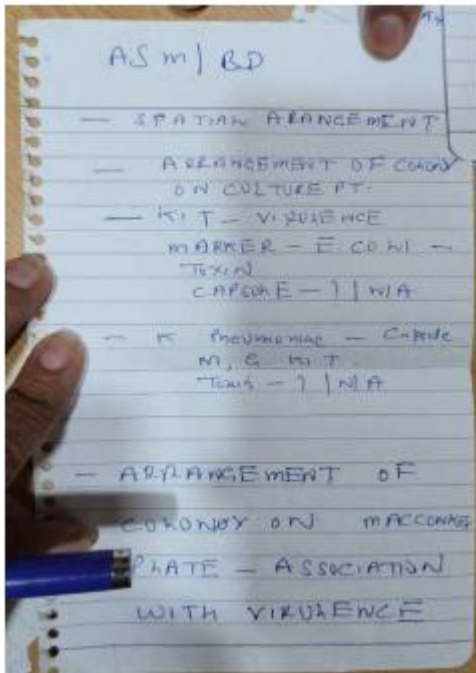 ASM/BD
- SPATIAL ARANGEMENT
- ARRANGEMENT OF COLONY
ON CULTURE PT.
- KIT - VIRULENCE
MARKER - E COLI -
TOXIN
CAPSULE - ? | N/A
- K Pneumoniae - Capsule
M, G KIT.
Toxin - ? | N/A
- ARRANGEMENT OF
COLONOY ON MACCONKEY
PLATE - ASSOCIATION
WITH VIRULENCE